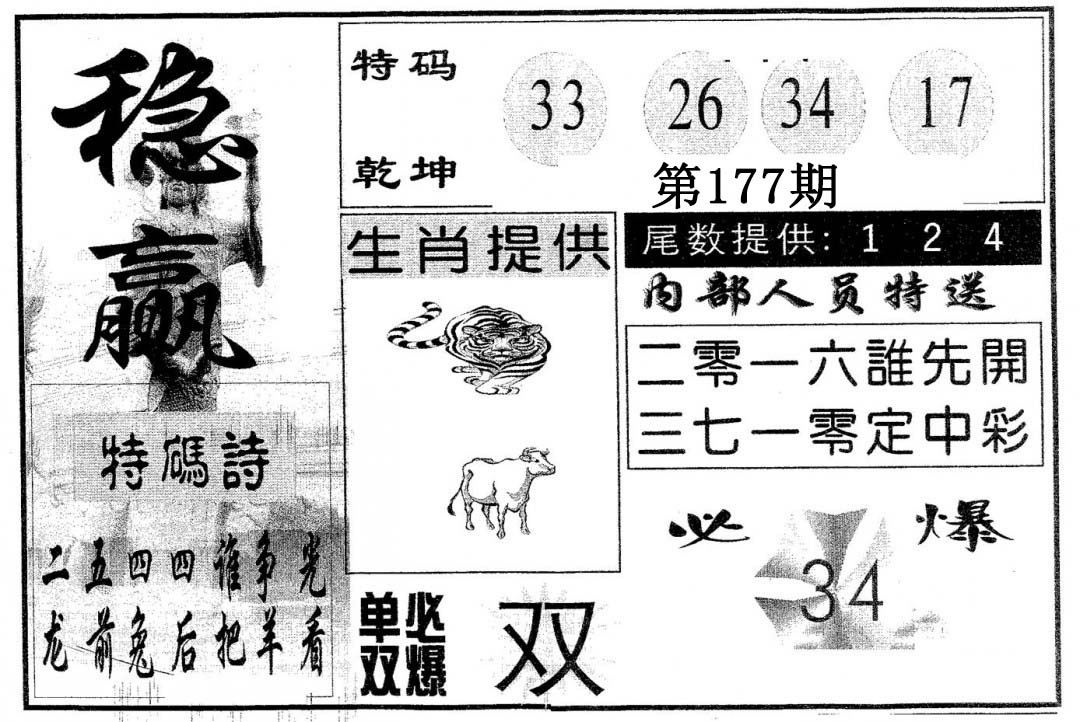 稳赢
特码
乾坤
33 26 34 17
第177期
生肖提供
尾数提供: 1 2 4
内部人员特送
二零一六誰先開
三七一零定中彩
特碼詩
二五四四谁争宠
龙前兔后把羊看
必爆
34
单双必爆
双